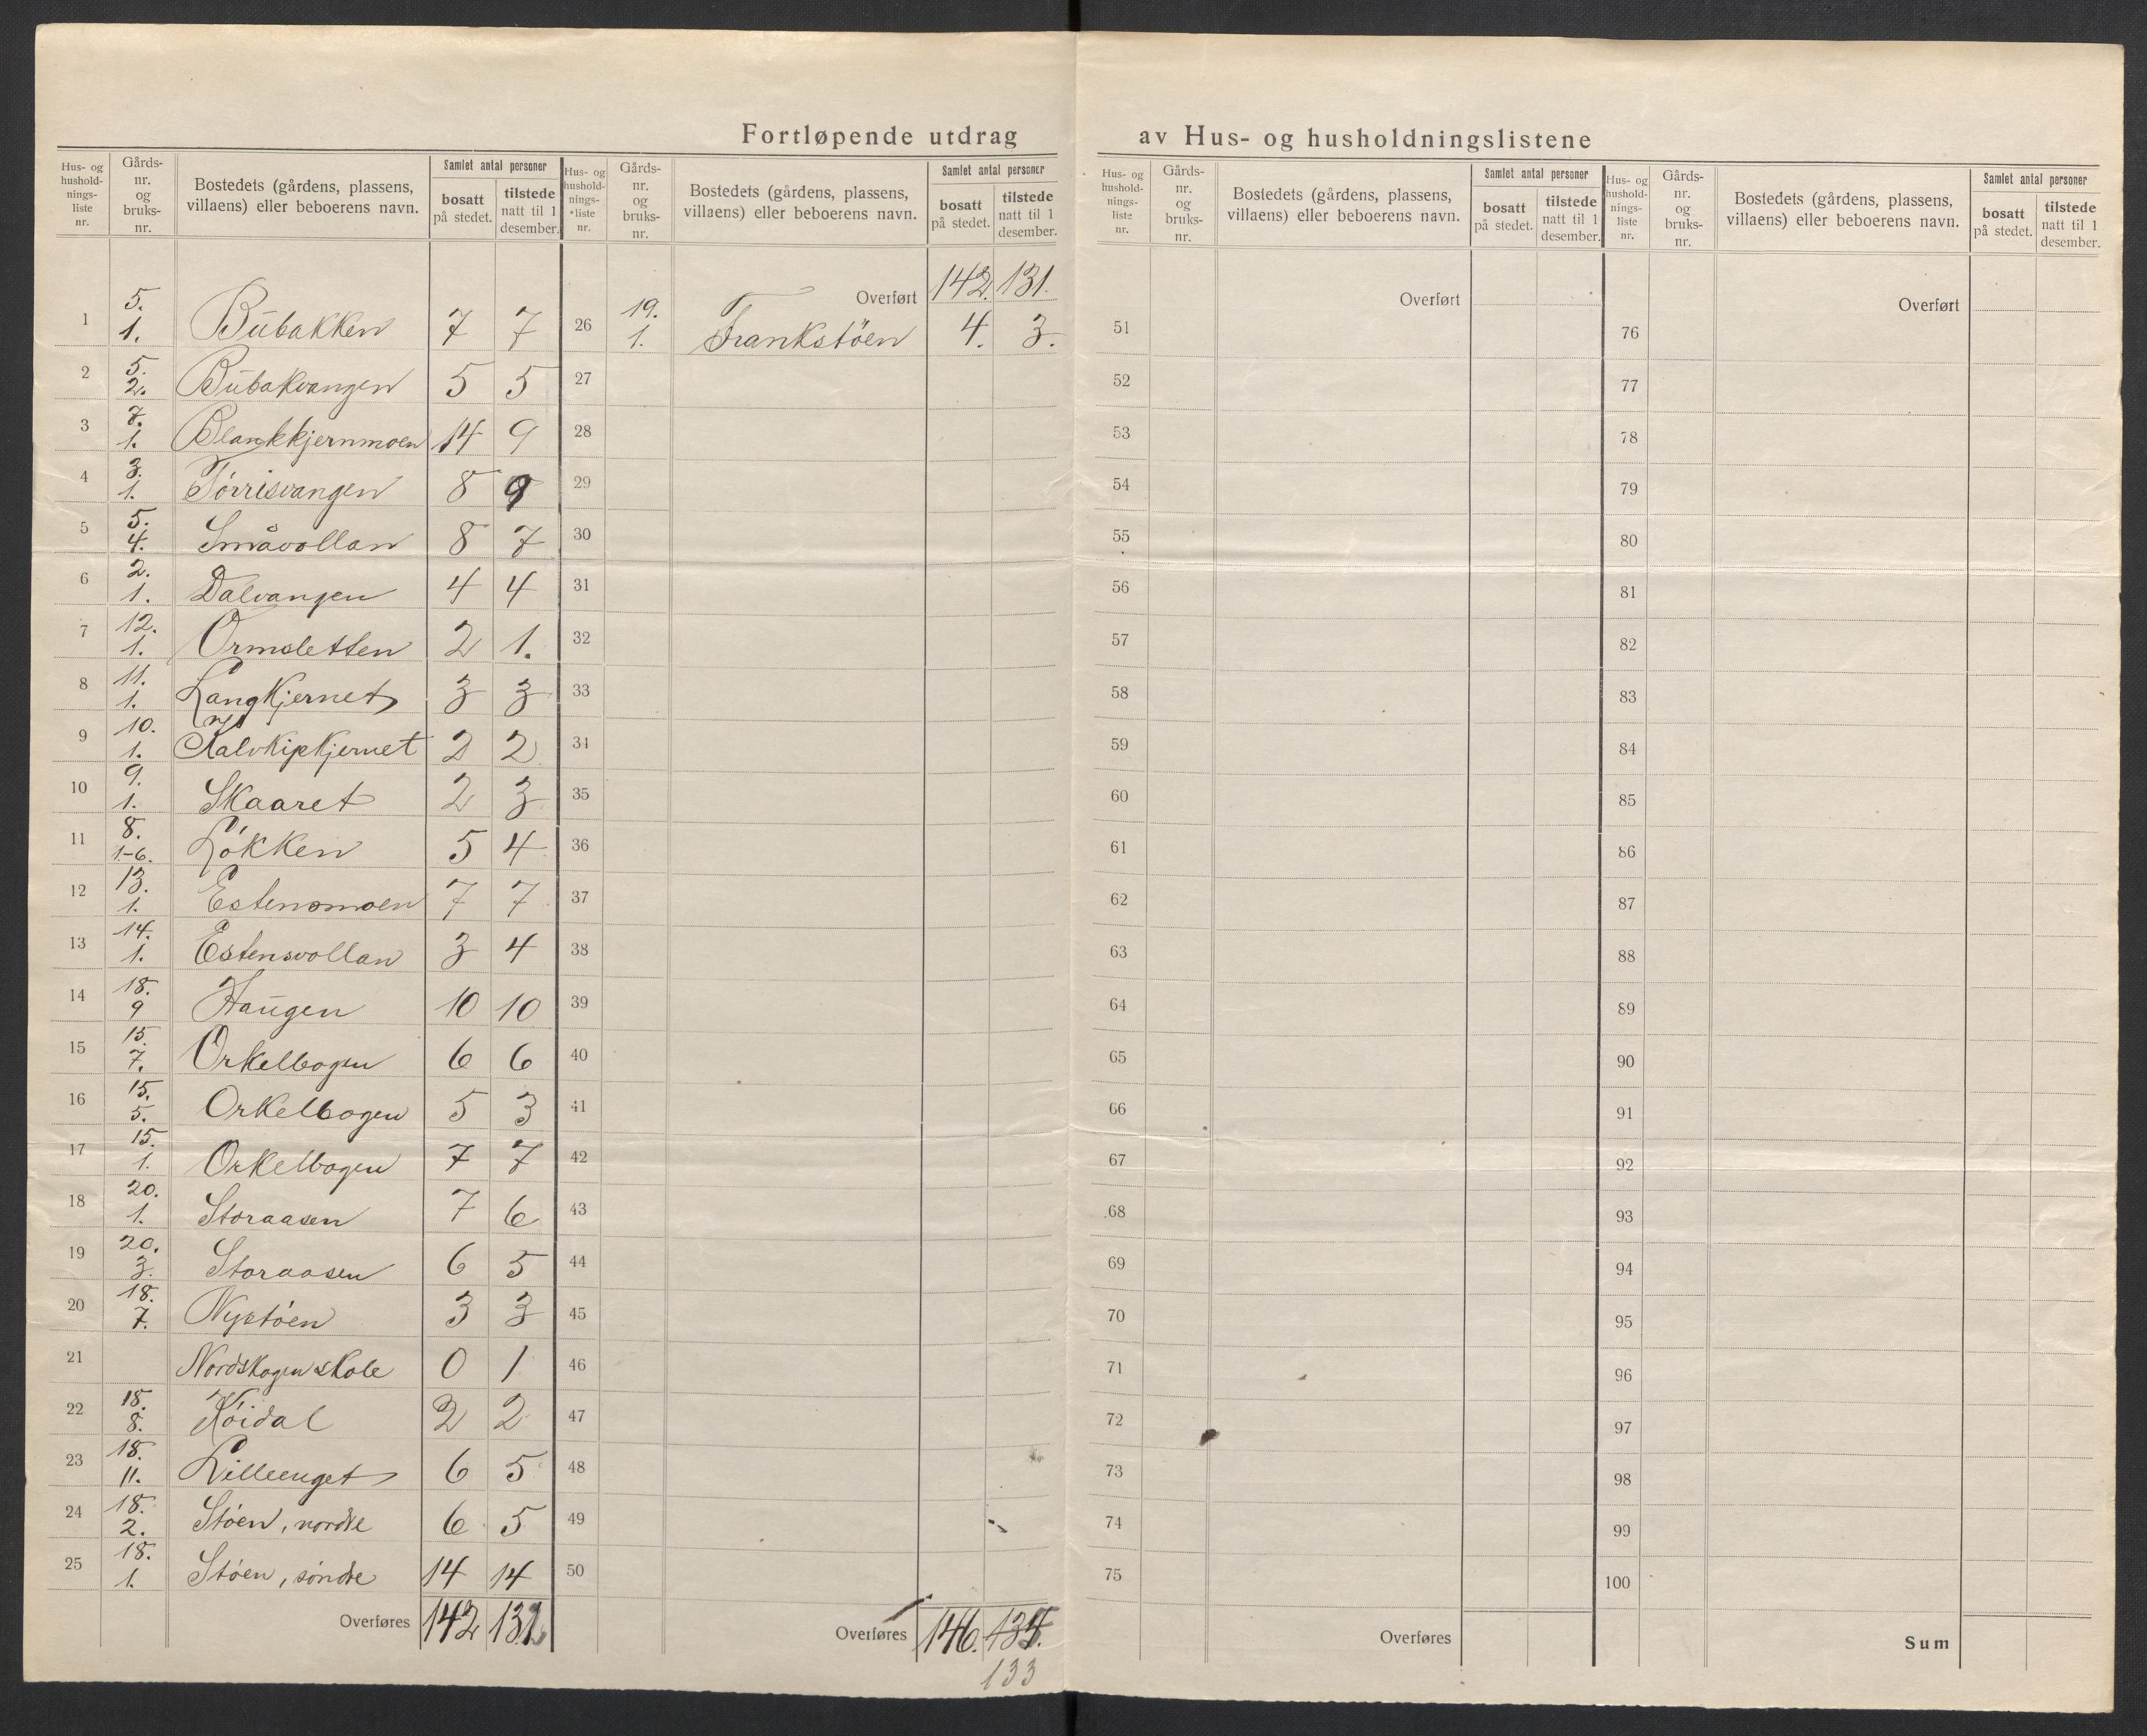 Fortløpende utdrag av Hus- og husholdningslistene
Hus- og hushold-nings-liste nr. Gårds-nr. og bruks-nr. Bostedets (gårdens, plassens, villaens) eller beboerens navn. Samlet antal personer bosatt på stedet. tilstede natt til 1 desember.
1 5. 1. Bübakken 7 7
2 5. 2. Bübakvangen 5 5
3 7. 1. Blankkjernmoen 14 9
4 3. 1. Tørrisvangen 8 9
5 5. 4. Småvollan 8 7
6 2. 1. Dalvangen 4 4
7 12. 1. Ormsletten 2 1.
8 11. 1. Langkjernet 3 3
9 10. 1. 2 2
10 9. 1. Skaaret 2 3
11 8. 1-6. Løkken 5 4
12 13. 1. Estensmoen 7 7
13 14. 1. Estensvollan 3 4
14 18. 9 Haügen 10 10
15 15. 7. Orkelbogen 6 6
16 15. 5. Orkelbogen 5 3
17 15. 1. Orkelbogen 7 7
18 20. 1. Storaasen 7 6
19 20. 3. Storaasen 6 5
20 18. 7. Nystøen 3 3
21 Nordskogen skole 0 1
22 18. 8. Høidal 2 2
23 18. 11. Lilleenget 6 5
24 18. 2. Støen, nordre 6 5
25 18. 1. Støen, søndre 14 14
Overføres 142
Hus- og hushold-nings-liste nr. Gårds-nr. og bruks-nr. Bostedets (gårdens, plassens, villaens) eller beboerens navn. Samlet antal personer bosatt på stedet. tilstede natt til 1 desember.
Overført 142. 131.
26 19. 1. Frankstöen 4. 3.
27
28
29
30
31
32
33
34
35
36
37
38
39
40
41
42
43
44
45
46
47
48
49
50
Overføres 146.
133
Hus- og hushold-nings-liste nr. Gårds-nr. og bruks-nr. Bostedets (gårdens, plassens, villaens) eller beboerens navn. Samlet antal personer bosatt på stedet. tilstede natt til 1 desember.
Overført
51
52
53
54
55
56
57
58
59
60
61
62
63
64
65
66
67
68
69
70
71
72
73
74
75
Overføres
Hus- og hushold-nings-liste nr. Gårds-nr. og bruks-nr. Bostedets (gårdens, plassens, villaens) eller beboerens navn. Samlet antal personer bosatt på stedet. tilstede natt til 1 desember.
Overført
76
77
78
79
80
81
82
83
84
85
86
87
88
89
90
91
92
93
94
95
96
97
98
99
100
Sum